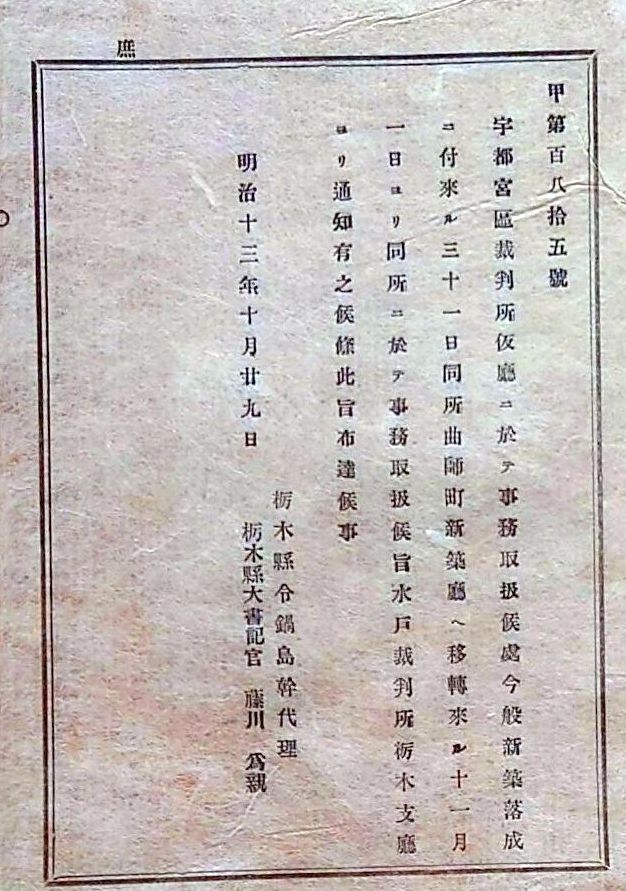 庶
甲第百八拾五號
宇都宮區裁判所仮廳ニ於テ事務取扱候處今般新築落成
ニ付來ル三十一日同所曲師町新築廳ヘ移轉來ル十一月
一日ヨリ同所ニ於テ事務取扱候旨水戸裁判所栃木支廳
ヨリ通知有之候條此旨布達候事
明治十三年十月廿九日
栃木縣令鍋島幹代理
栃木縣大書記官 藤川爲親